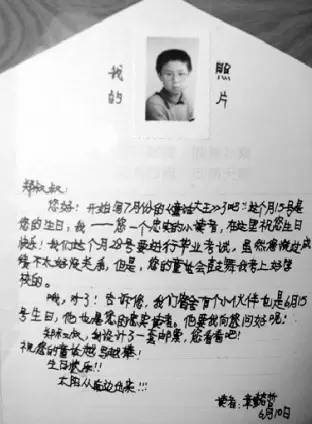 我 照
的 片
郑叔叔:
您好!开始写7月份的《童话大王》了吧?这个月15号是
您的生日,我——您一个忠实的小读者,在这里祝您生日
快乐!我们这个月28号要进行毕业考试,虽然您说过成
绩不太好没关系,但是,您的童话会鼓舞我考上好学
校的。
哦,对了!告诉您,我们有个小伙伴也是6月15
号生日,他也是您的忠实读者。他要我向您问好呢!
郑叔叔,我设计了一套邮票,您看看吧!
祝您的童话越写越棒!
生日快乐!!
太阳从西边出来!!!
读者:
6月10日